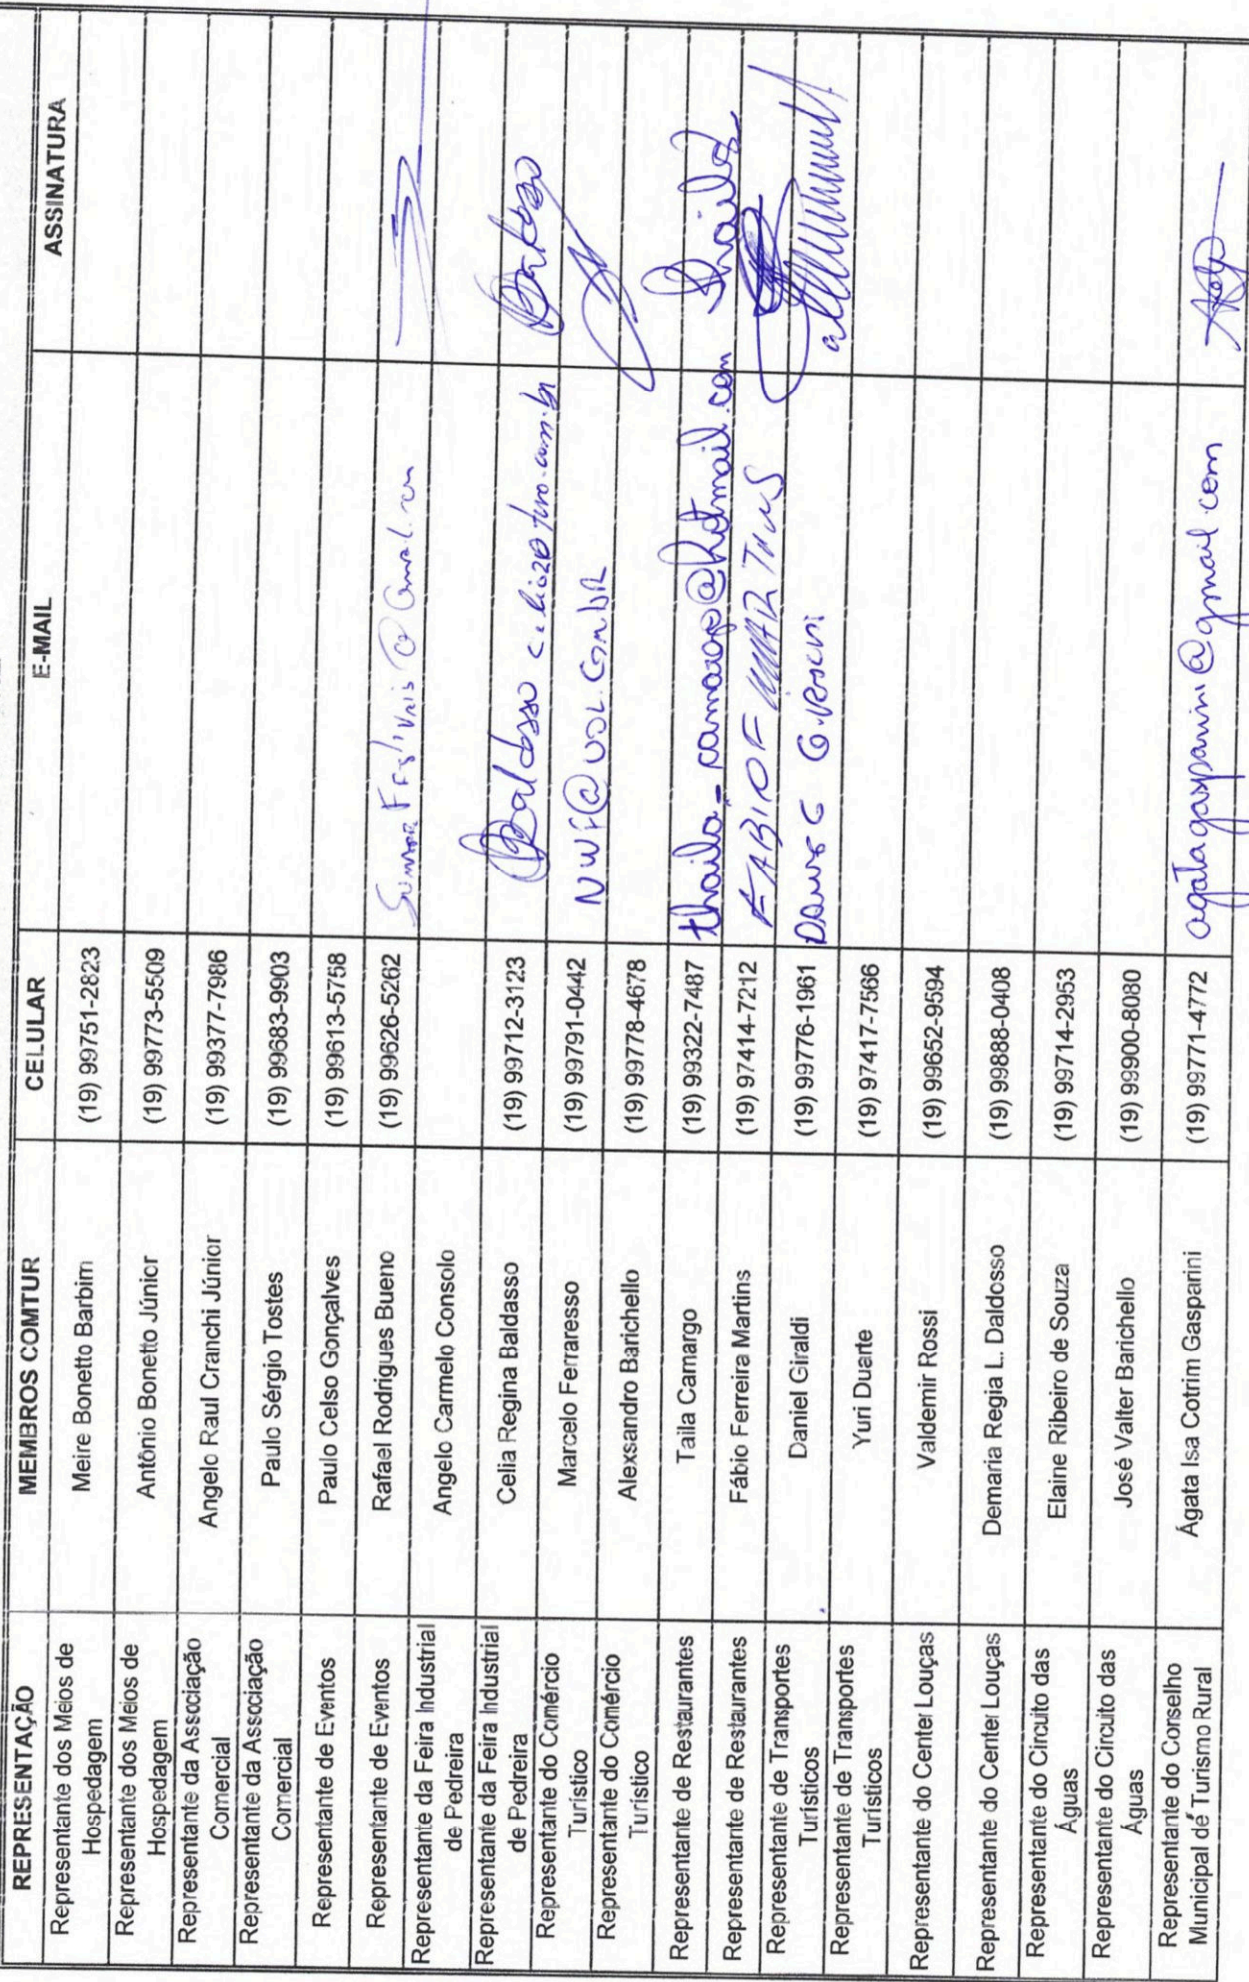 REPRESENTAÇÃO MEMBROS COMTUR CELULAR E-MAIL ASSINATURA
Representante dos Meios de Hospedagem Meire Bonetto Barbim (19) 99751-2823
Representante dos Meios de Hospedagem Antônio Bonetto Júnior (19) 99773-5509
Representante da Associação Comercial Angelo Raul Cranchi Júnior (19) 99377-7986
Representante da Associação Comercial Paulo Sérgio Tostes (19) 99683-9903
Representante de Eventos Paulo Celso Gonçalves (19) 99613-5758
Representante de Eventos Rafael Rodrigues Bueno (19) 99626-5262
Representante da Feira Industrial de Pedreira Angelo Carmelo Consolo
Representante da Feira Industrial de Pedreira Celia Regina Baldasso (19) 99712-3123
Representante do Comércio Turístico Marcelo Ferraresso (19) 99791-0442
Representante do Comércio Turístico Alexsandro Barichello (19) 99778-4678
Representante de Restaurantes Taila Camargo (19) 99322-7487 thaila_camargo@hotmail.com Thaila
Representante de Restaurantes Fábio Ferreira Martins (19) 97414-7212 FABIO F
Representante de Transportes Turísticos Daniel Giraldi (19) 99776-1961
Representante de Transportes Turísticos Yuri Duarte (19) 97417-7566
Representante do Center Louças Valdemir Rossi (19) 99652-9594
Representante do Center Louças Demaria Regia L. Daldosso (19) 99888-0408
Representante do Circuito das Águas Elaine Ribeiro de Souza (19) 99714-2953
Representante do Circuito das Águas José Valter Barichello (19) 99900-8080
Representante do Conselho Municipal de Turismo Rural Ágata Isa Cotrim Gasparini (19) 99771-4772 agatagasparini@gmail.com